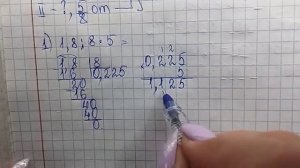 II - ?, 5/8 от
1) 1,8 : 8 · 5 =
1 8 1 8
16 0,225
20
- 16
40
40
0
1 2
0,225
5
1,125